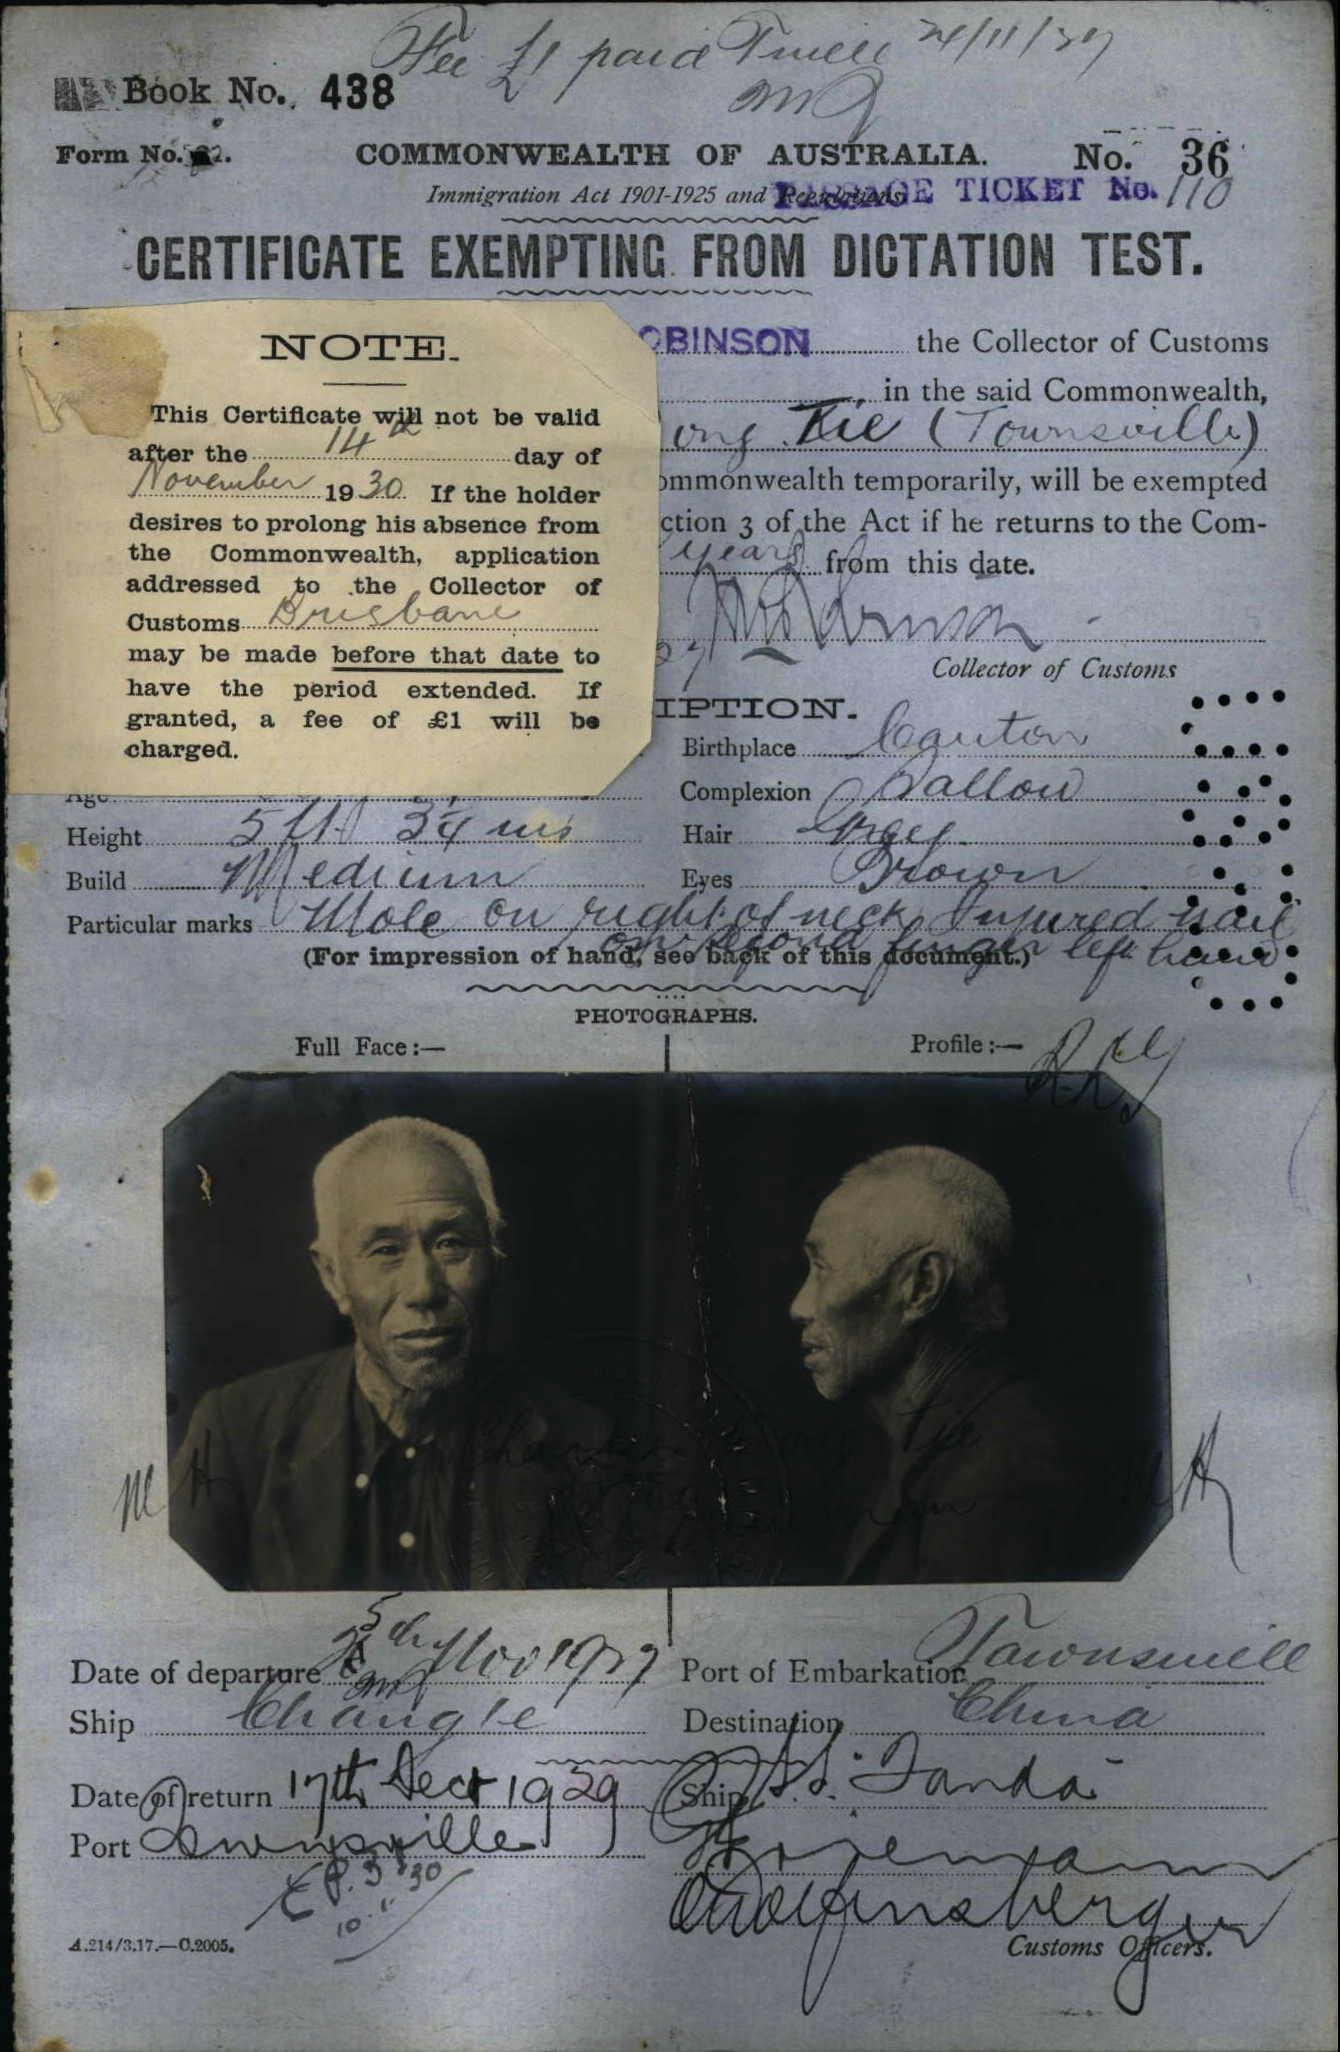 Fee £1 paid 24/11/27
Book No. 438
Form No.
COMMONWEALTH OF AUSTRALIA. No. 36
Immigration Act 1901-1925 and Regulations.
PASSAGE TICKET No. 110
CERTIFICATE EXEMPTING FROM DICTATION TEST.
NOTE.
This Certificate will not be valid
after the 14th day of
November 1930 If the holder
desires to prolong his absence from
the Commonwealth, application
addressed to the Collector of
Customs Brisbane
may be made before that date to
have the period extended. If
granted, a fee of £1 will be
charged.
OBINSON the Collector of Customs
in the said Commonwealth,
ong Tie (Townsville)
ommonwealth temporarily, will be exempted
ction 3 of the Act if he returns to the Com-
years from this date.
Collector of Customs
IPTION.
Birthplace Canton
Age Complexion Sallow
Height 5 ft 3¼ ins Hair Grey
Build Medium Eyes Brown
Particular marks Mole on right of neck Injured nail
on second finger left hand
(For impression of hand, see back of this document.)
PHOTOGRAPHS.
Full Face:— Profile:—
M H
Tie
Date of departure 25th Nov 1927 Port of Embarkation Townsville
Ship Changte Destination China
Date of return 17th Dec 1929 Ship S.S. Tanda
Port Townsville
10.1.30
A.214/3.17.—C.2005.
Customs Officers.